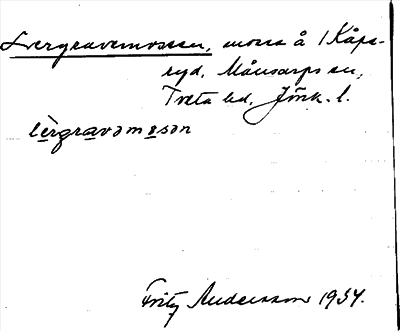 Lergravemossen, mosse å 1 Kåps-
ryd, Månsarps sn,
Tveta hd, Jönk. l.
lèrgravəmosən
Fritz Andersson 1934.